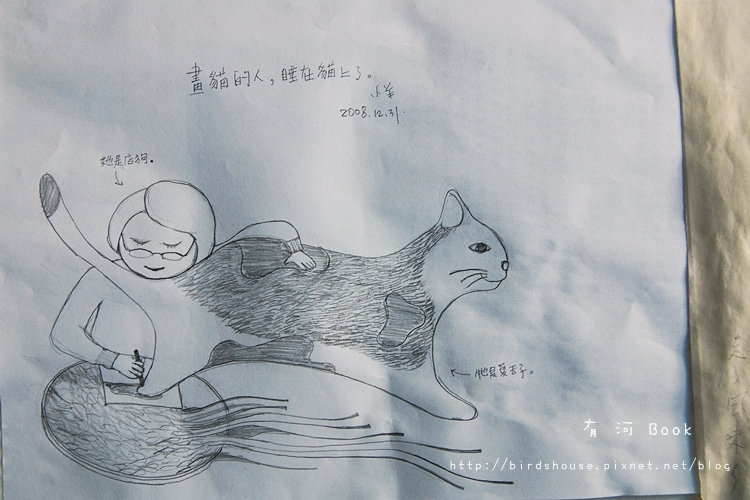 畫貓的人，睡在貓上了。
小羊
2008.12.31.
她是店狗。
牠是葉吉子。
有河 Book
http://birdshouse.pixnet.net/blog